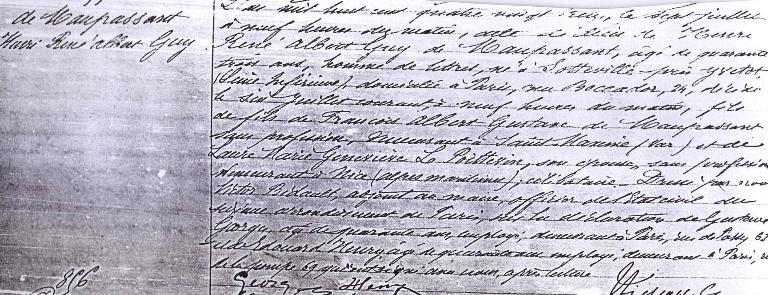 de Maupassant
Henri René Albert Guy
L'an mil huit cent quatre vingt treize, le sept juillet
à neuf heures du matin, acte de décès de Henri
René Albert Guy de Maupassant, âgé de quarante
trois ans, homme de lettres, né à Sotteville près Yvetot
(Seine Inférieure), domicilié à Paris, rue Boccador, 24, décédé
le six juillet courant à neuf heures du matin, fils
de François Albert Gustave de Maupassant
sans profession, demeurant à Sainte Maxime (Var) et de
Laure Marie Geneviève Le Poittevin, son épouse, sans profession
demeurant à Nice (Alpes maritimes), célibataire. Dressé par nous
Victor Bidault, adjoint au maire, officier de l'état civil du
seizième arrondissement de Paris, sur la déclaration de Gustave
âgé de quarante ans, employé, demeurant à Paris, rue de Passy,
et de Edouard Henry, âgé de quarante ans, employé, demeurant à Paris, rue
de la pompe 69 qui ont signé avec nous, après lecture
856
Henry